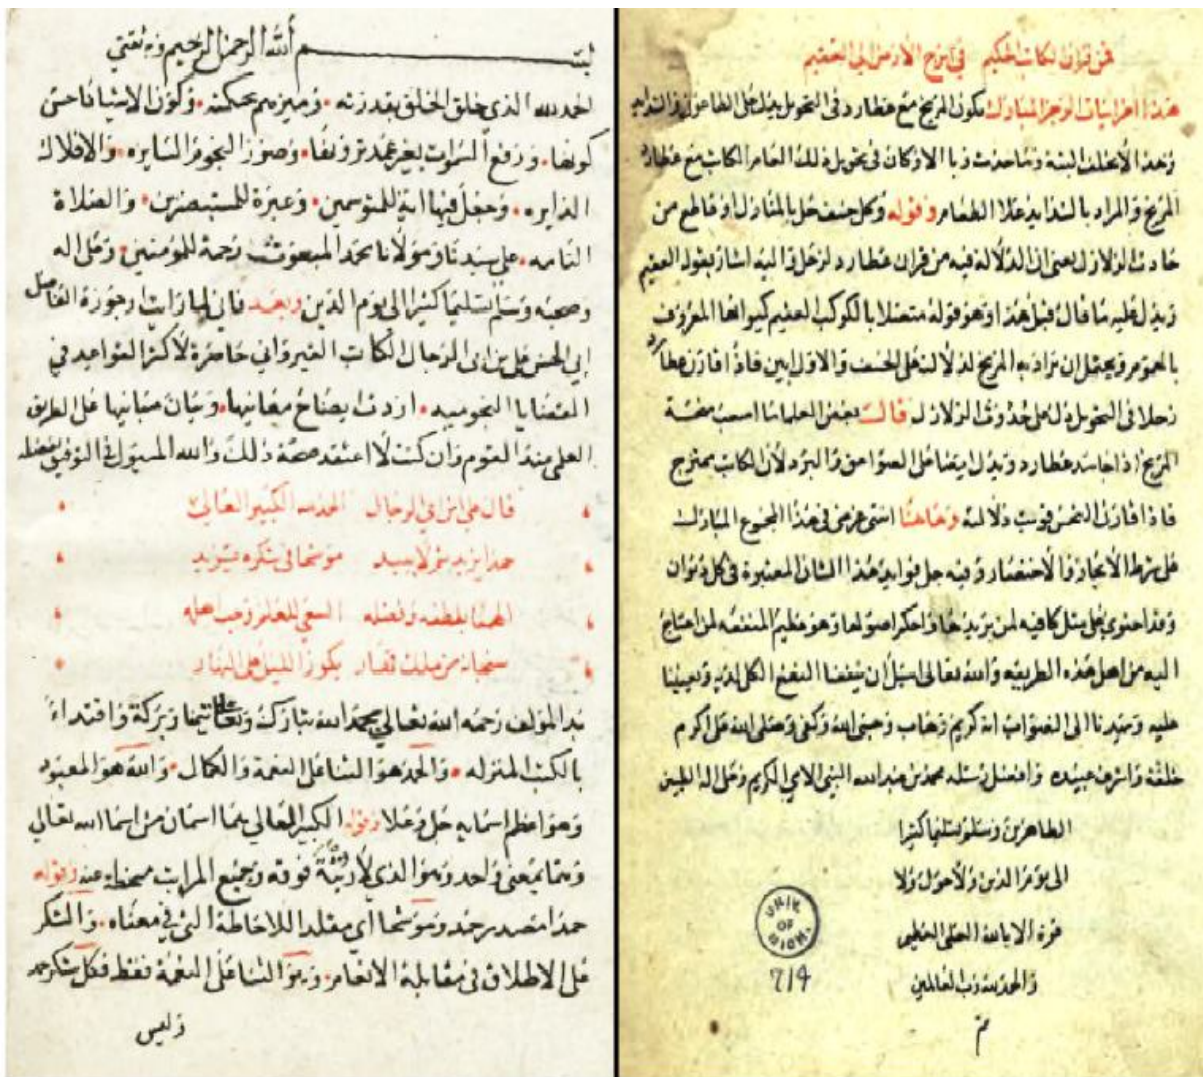 بسم الله الرحمن الرحيم وبه ثقتي
الحمد لله الذي خلق الخلق بقدرته وميزهم بحكمته وكون الاشيا فاحسن
كونها ورفع السموات بغير عمد ترونها وصور النجوم السايره والافلاك
الدايره وجعل فيها اية للمتوسمين وعبرة للمستبصرين والصلاة
التامه على سيدنا ومولانا محمد المبعوث رحمة للمومنين وعلى اله
وصحبه وسلم تسليما كثيرا الى يوم الدين وبعد فاني لما رايت ارجوزة الفاضل
ابي الحسن علي بن ابي الرجال الكاتب القيرواني حاصرة لاكثر القواعد في
القضايا النجوميه اردت ايضاح معانيها وبيان مبانيها على الطريق
العلمي عند القوم وان كنت لا اعتقد صحة ذلك والله المسول في التوفيق بفضله
قال علي بن ابي الرجال الحمد لله الكبير العالي
حمدا يزيد ثم لا يبيد موشحا في شكره مزيد
الهمنا بلطفه وفضله السعي للعلم وحب اهله
سبحانه من ملك قهار يكور الليل على النهار
بدا المولف رحمه الله تعالى بحمد الله تبارك وتعالى تيمنا وبركة واقتداء
بالكتب المنزله والحمد هو الثنا على النعمة والكمال والله هو المعبود
وهو اعظم اسمايه جل وعلا وقوله الكبير العالي هما اسمان من اسما الله تعالى
وهما بمعنى واحد وهو الذي لا رتبة فوقه وجميع المراتب منحطة عنه وقوله
حمدا مصدر حمد وموشحا اي مقلدا للاحاطة التي في معناه والشكر
على الاطلاق في مقابلة الانعام وهو الثنا على النعمة فقط فكل شكر حمد
وليس
في ابرج الارض الى العقيم
هذا اخر ابيات الرجز المبارك يكون المريخ مع عطارد في التحويل يدل على الطاعون
وهذا لا يختلف البتة في تحويل ذلك العام الكاتب مع عطارد
المريخ والمراد بالشدايد غلا الطعام وقوله وكل خسف حل بالمنازل او قاطع من
حادث الزلازل يعني ان الدلالة فيه من قران عطارد لزحل واليه اشار بقوله العقيم
ويدل عليه ما قال قبل هذا وهو قوله متصلا بالكوكب العقيم كيوانها المعروف
ويحتمل ان يراد به المريخ لدلالته على الخسف والاول ابين فاذا قارن عطارد
زحلا في التحويل دل على حدوث الزلازل قالت بعض العلما
المريخ اذا جاسد عطارد ويدل ايضا على الصواعق والبرد لان الكاتب ممتزج
فاذا قارن النحس قويت دلالته وهاهنا انتهى غرضي في هذا المجموع المبارك
على شرط الايجاز والاختصار وفيه جل فوايد هذا الشان المعتبرة في كل
لمن يريد وهو عظيم المنفعه لمن احتاج
اليه من اهل هذه الطريقه والله تعالى اسيل ان ينفعنا
عليه ويهدينا الى الصواب انه كريم وهاب وحسبي الله وكفى وصلى الله على اكرم
خلقه واشرف عبيده وافضل رسله محمد بن عبد الله النبي الامي الكريم وعلى اله الطيبين
الطاهرين وسلم تسليما كثيرا
الى يوم الدين ولا حول ولا
قوة الا بالله العلي العظيم
والحمد لله رب العالمين
تم
UNIV OF MICH.
719